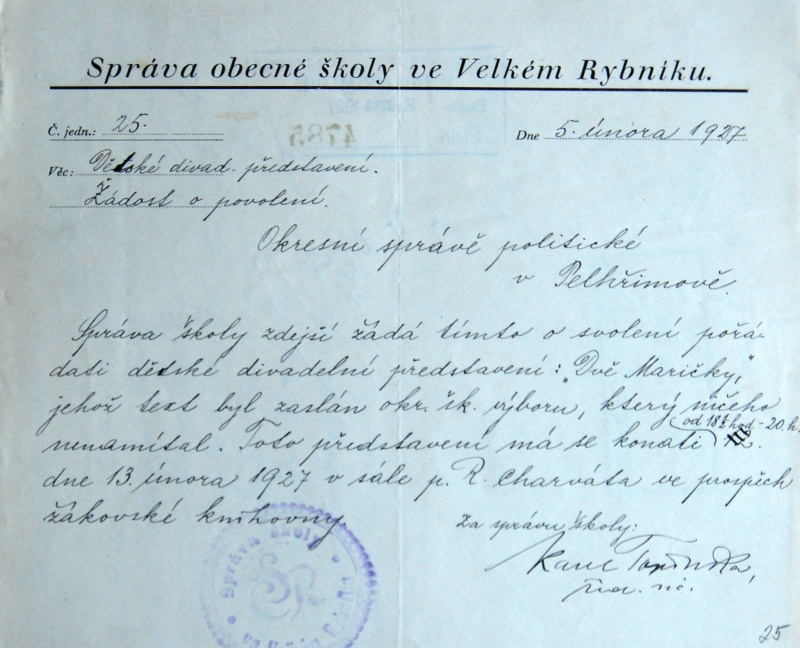 Správa obecné školy ve Velkém Rybníku.
Č. jedn.: 25.
Dne 5. února 1927
Věc: Dětské divad. představení.
Žádost o povolení.
Okresní správě politické
v Pelhřimově.
Správa školy zdejší žádá tímto o svolení pořá-
dati dětské divadelní představení: „Dvě Maričky,"
jehož text byl zaslán okr. šk. výboru, který ničeho
nenamítal. Toto představení má se konati (od 18½ hod - 20. h.
dne 13. února 1927 v sále p. R. Charváta ve prospěch
žákovské knihovny.
Za správu školy:
Karel
říd. uč.
Správa školy
SR
25
4785